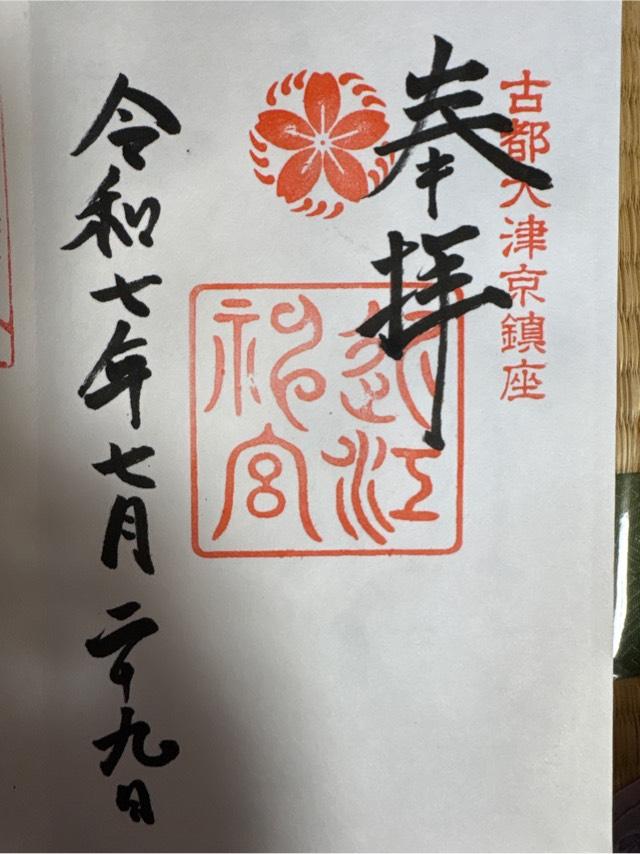 古都大津京鎮座
奉拝
近江
神宮
令和七年七月二十九日